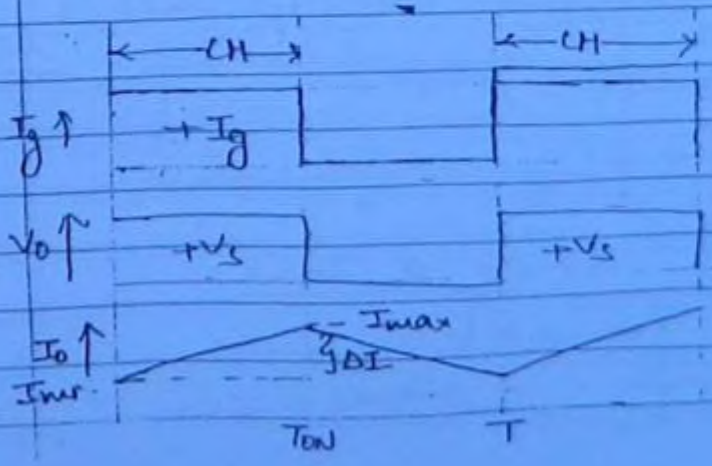 CH CH
Ig ↑ + Ig
Vo ↑ +Vs +Vs
Io ↑ - Imax
ΔI
TON T